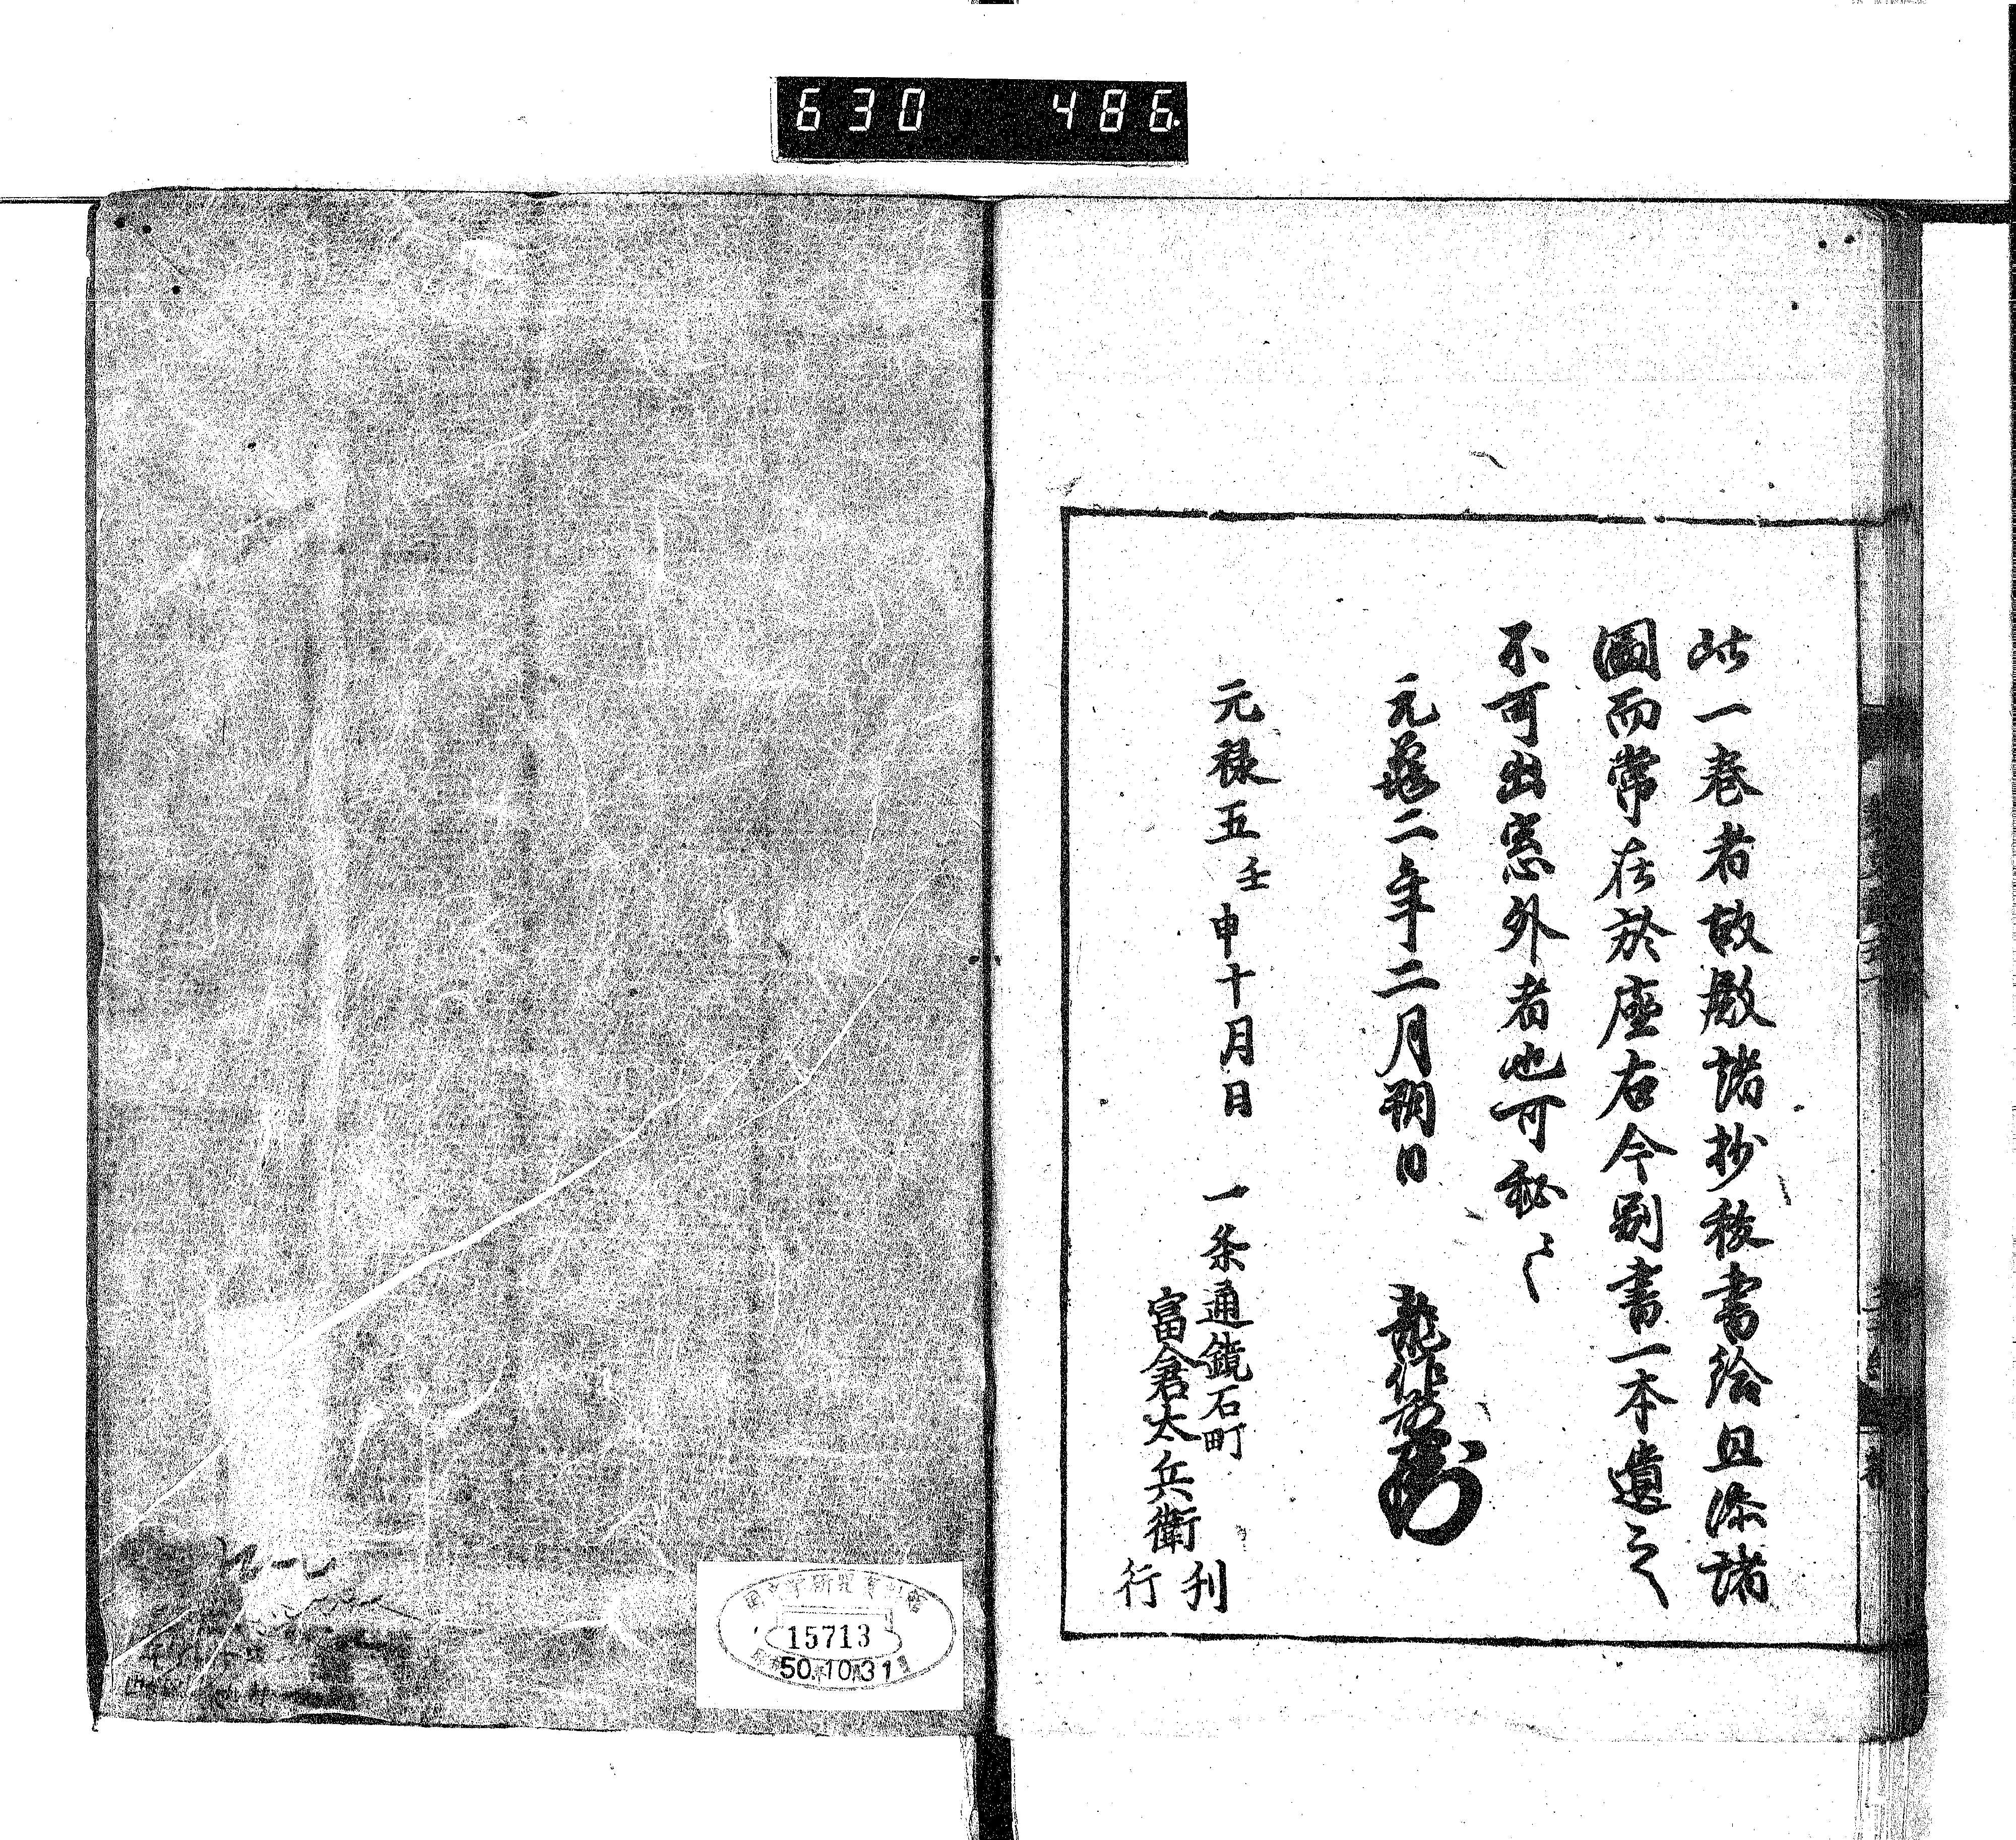 630 486
此一巻者故殿諸抄秘書給且添諸
圖而常在於座右今別書一本遺之
不可出窓外者也可秘〻
元亀二年二月朔日
元禄五壬申十月日
一条通鏡石町
富倉太兵衛
刊行
15713
50.10.31